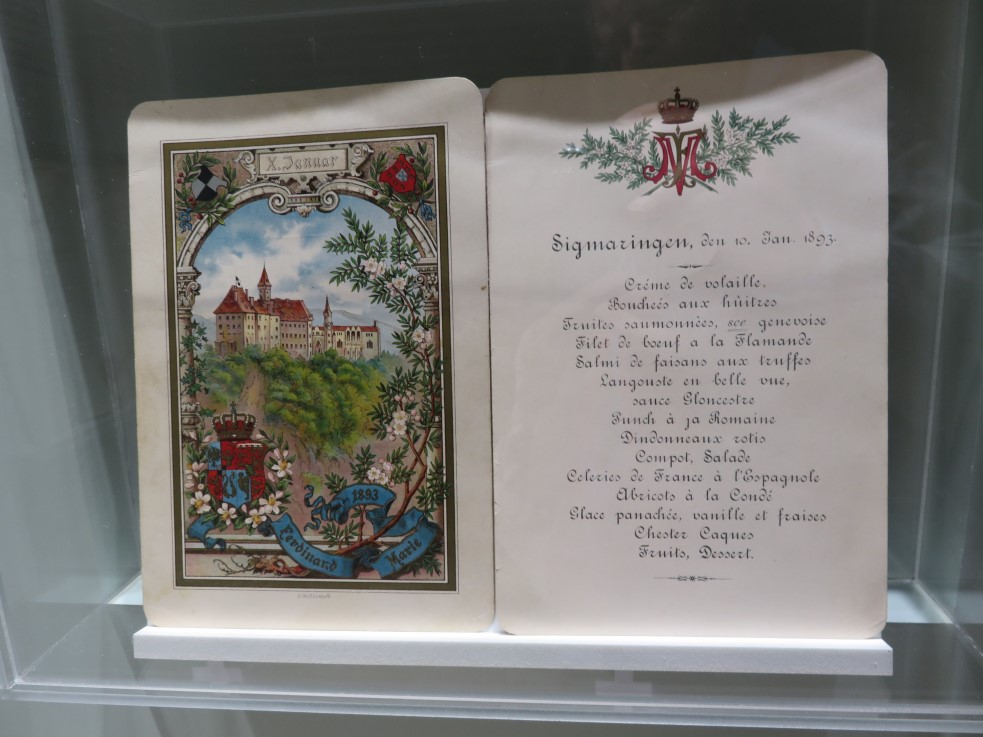 X. Januar
1893
Ferdinand
Marie
Sigmaringen, den 10. Jan. 1893.
Créme de volaille.
Boucheés aux hûitres
Truites saumonnées, sce genevoise
Filet de bœuf a la Flamande
Salmi de faisans aux truffes
Langouste en belle vue,
sauce Gloncestre
Punch à ja Romaine
Dindonneaux rotis
Compot, Salade
Celeries de France à l'Espagnole
Abricots à la Condé
Glace panachée, vanille et fraises
Chester Caques
Fruits, Dessert.